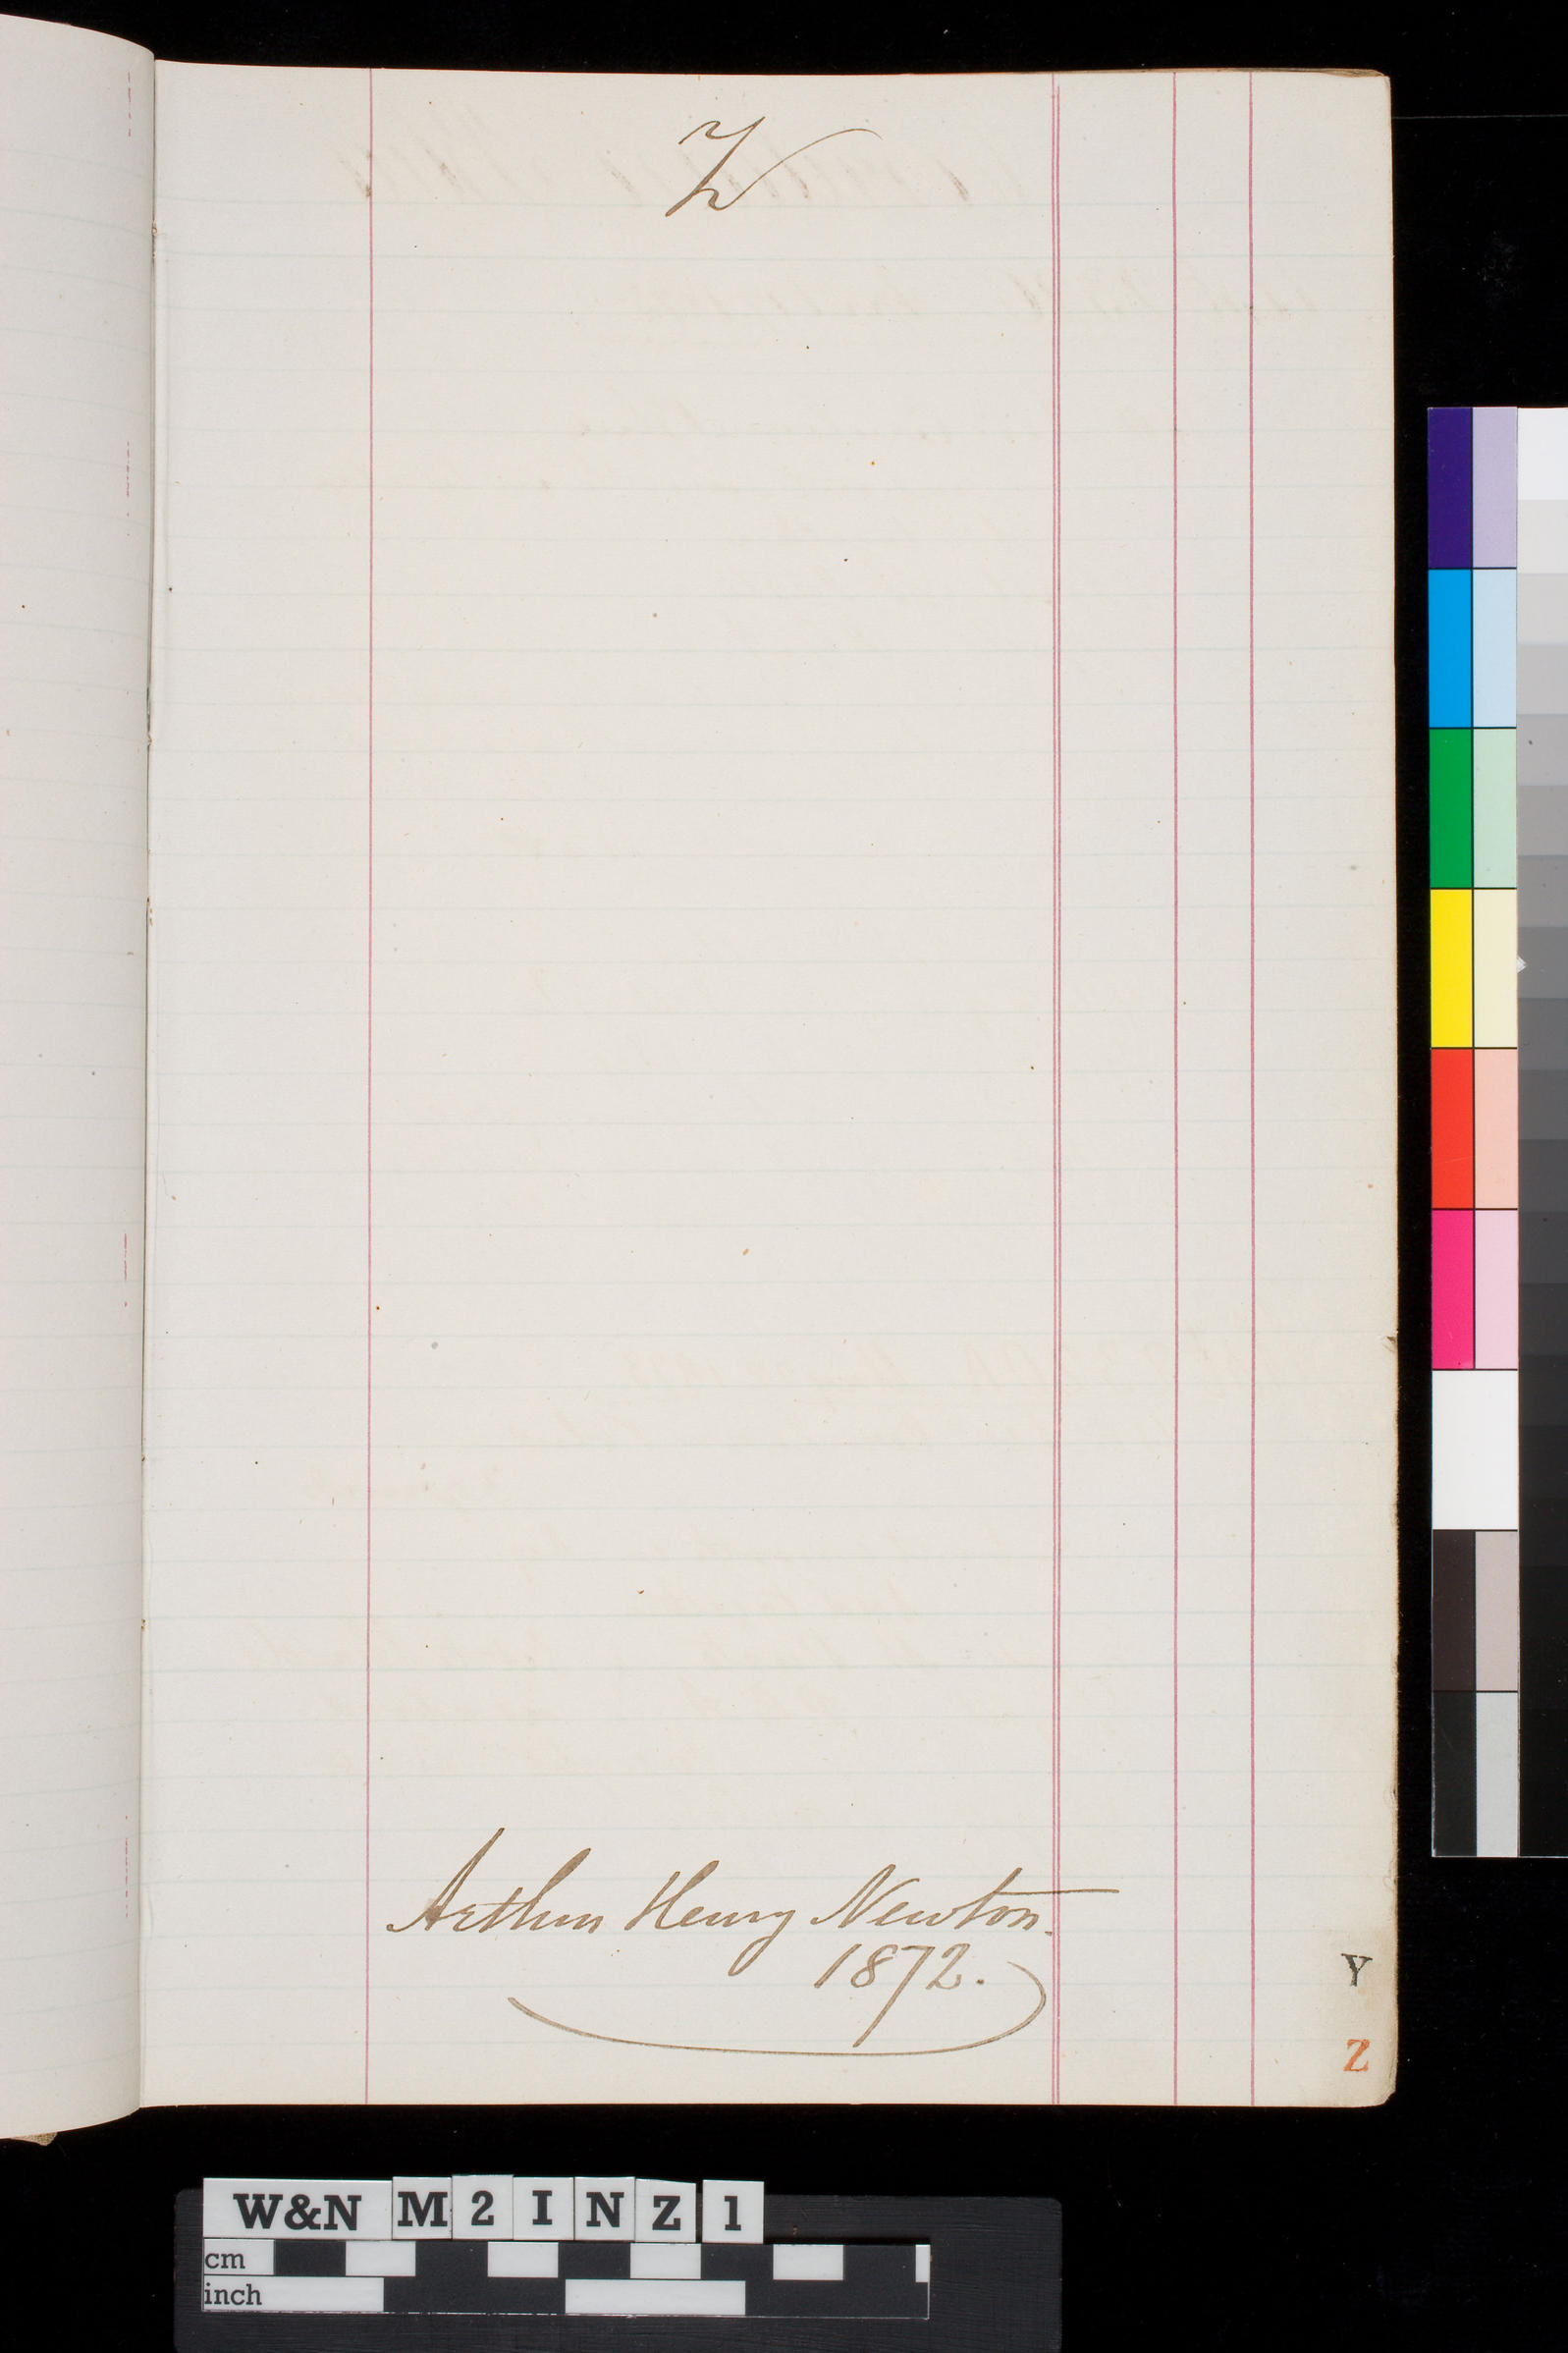 Z
Arthur Henry Newton.
1872.
Y
Z
W&N M 2 I N Z 1
cm
inch